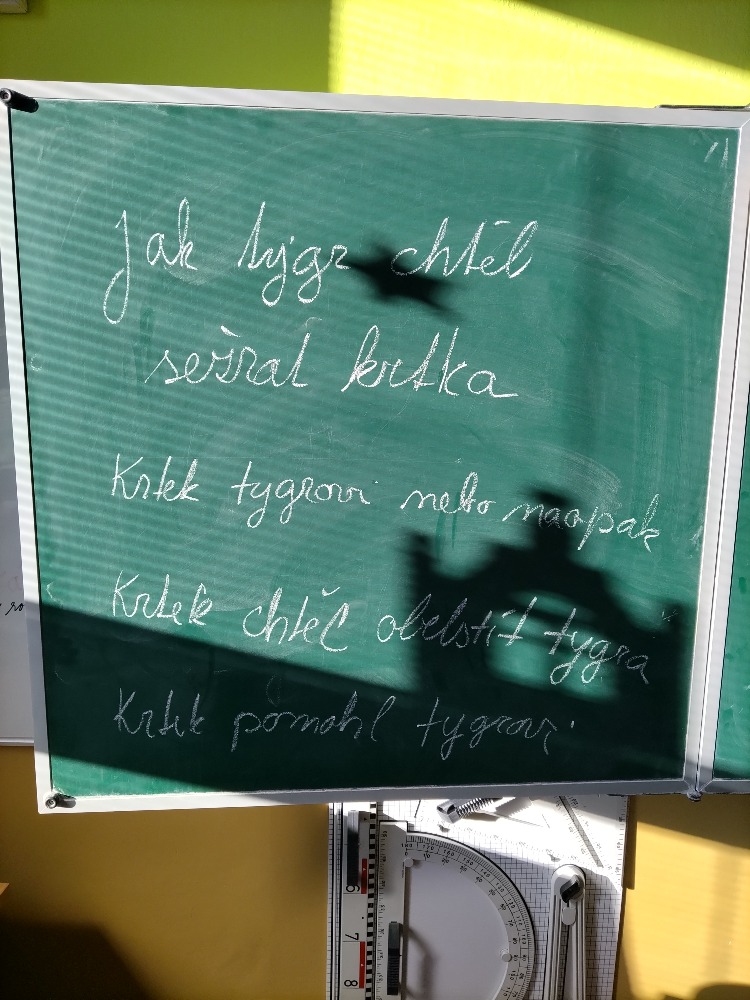 Jak tygr chtěl
sežrat krtka
Krtek tygrovi nebo naopak
Krtek chtěl obelstít tygra
Krtek pomohl tygrovi
6
7
8